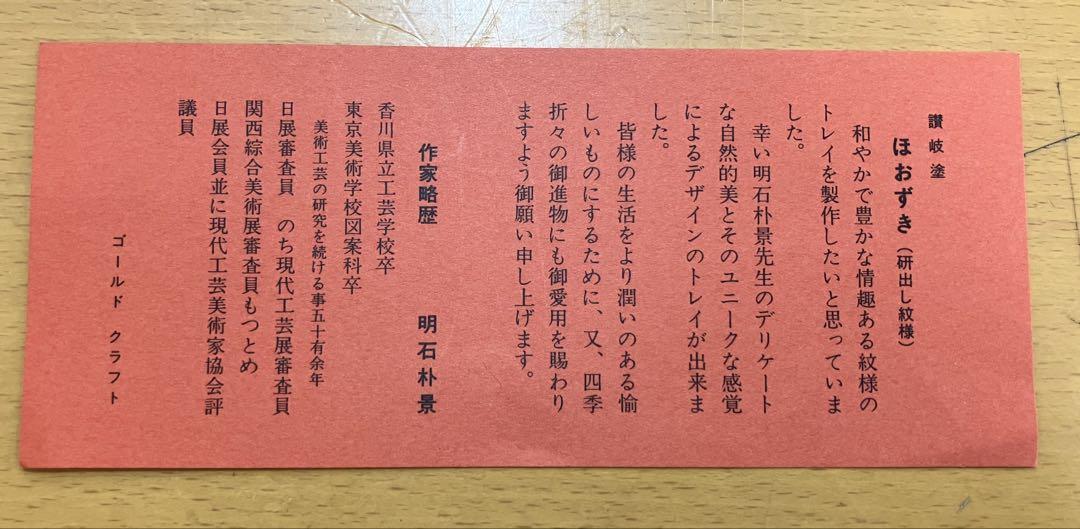 讃岐塗
ほおずき（研出し紋様）
和やかで豊かな情趣ある紋様の
トレイを製作したいと思っていま
した。
幸い明石朴景先生のデリケート
な自然的美とそのユニークな感覚
によるデザインのトレイが出来ま
した。
皆様の生活をより潤いのある愉
しいものにするために、又、四季
折々の御進物にも御愛用を賜わり
ますよう御願い申し上げます。
作家略歴　明石朴景
香川県立工芸学校卒
東京美術学校図案科卒
美術工芸の研究を続ける事五十有余年
日展審査員　のち現代工芸展審査員
関西綜合美術展審査員もつとめ
日展会員並に現代工芸美術家協会評
議員
ゴールド　クラフト